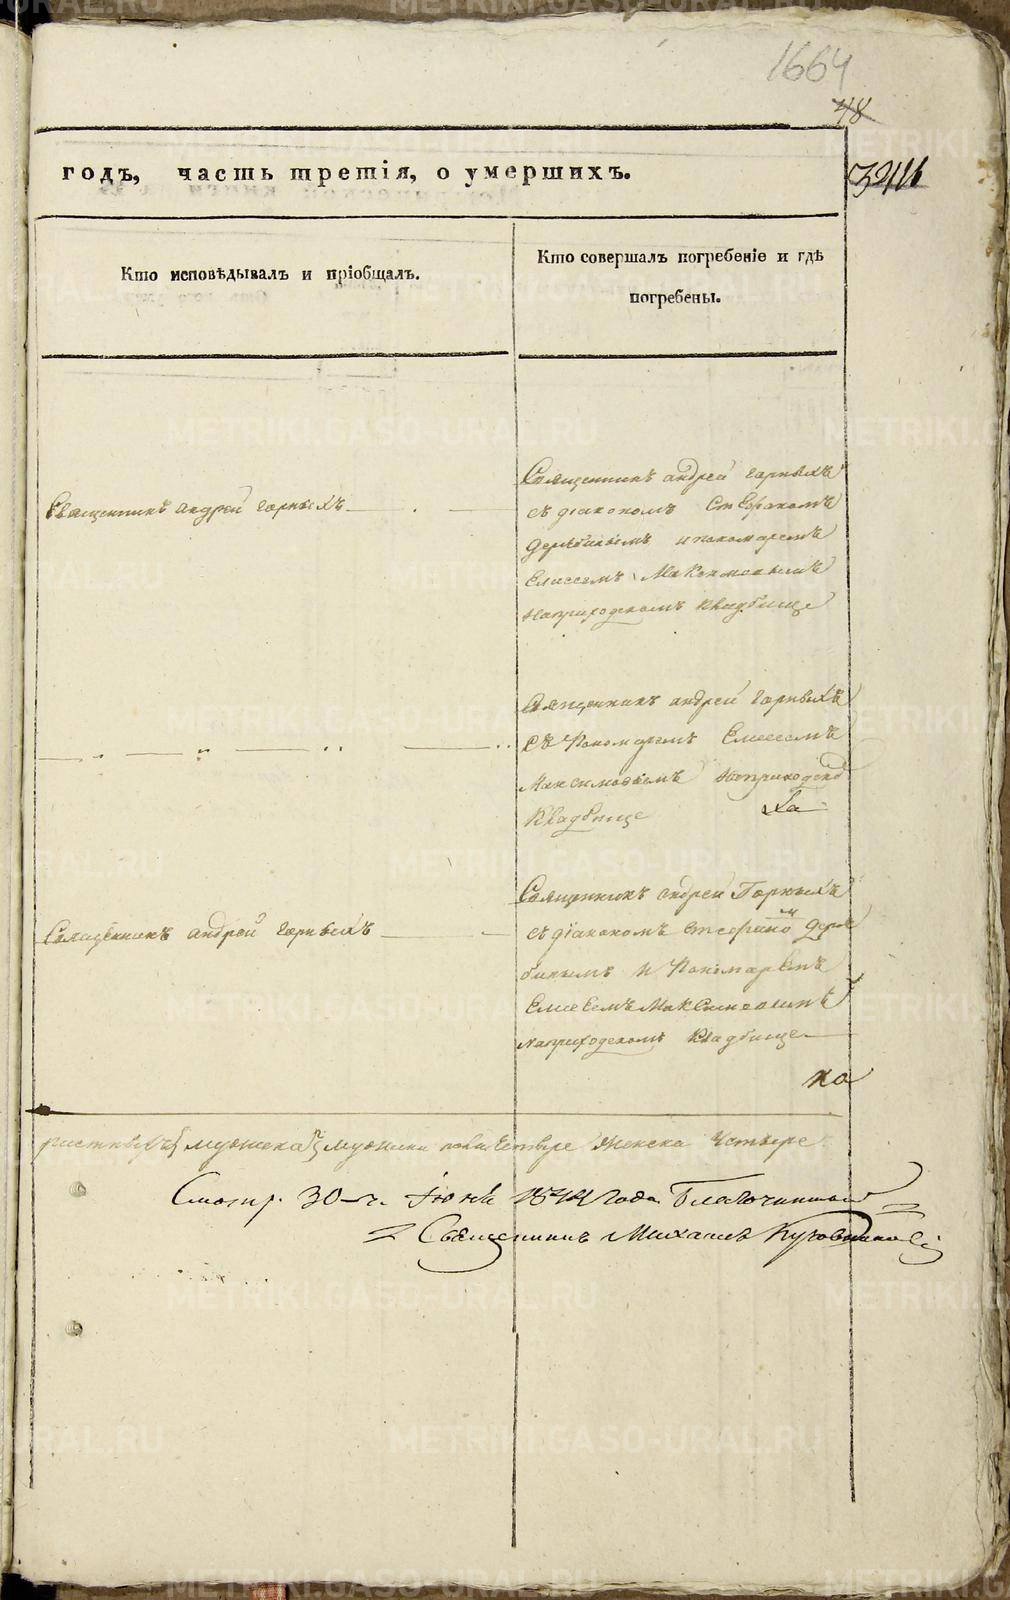 1664
48
годъ, часть третія, о умершихъ.
Кто исповѣдывалъ и пріобщалъ.
Кто совершалъ погребеніе и гдѣ
погребены.
Священникъ андрей горныхъ
Священникъ андрей горныхъ
съ діакономъ Стефаномъ
Дерябинымъ и пономаремъ
Елисеемъ Максимовымъ
наприходскомъ кладбище
Священникъ андрей горныхъ
съ Пономаремъ Елисеемъ
Максимовымъ наприходско
Кладбище
Священникъ андрей горныхъ
Священникъ андрей Горныхъ
съ діакономъ Стефано м Деря
бинымъ и Пономаремъ
Елисеемъ Максимовымъ
наприходскомъ Кладбище
на
мужска женска четыре
Смотр. 30 ч. Іюня года Благочинной
Священникъ Михаилъ
METRIKI.GASO-URAL.RU